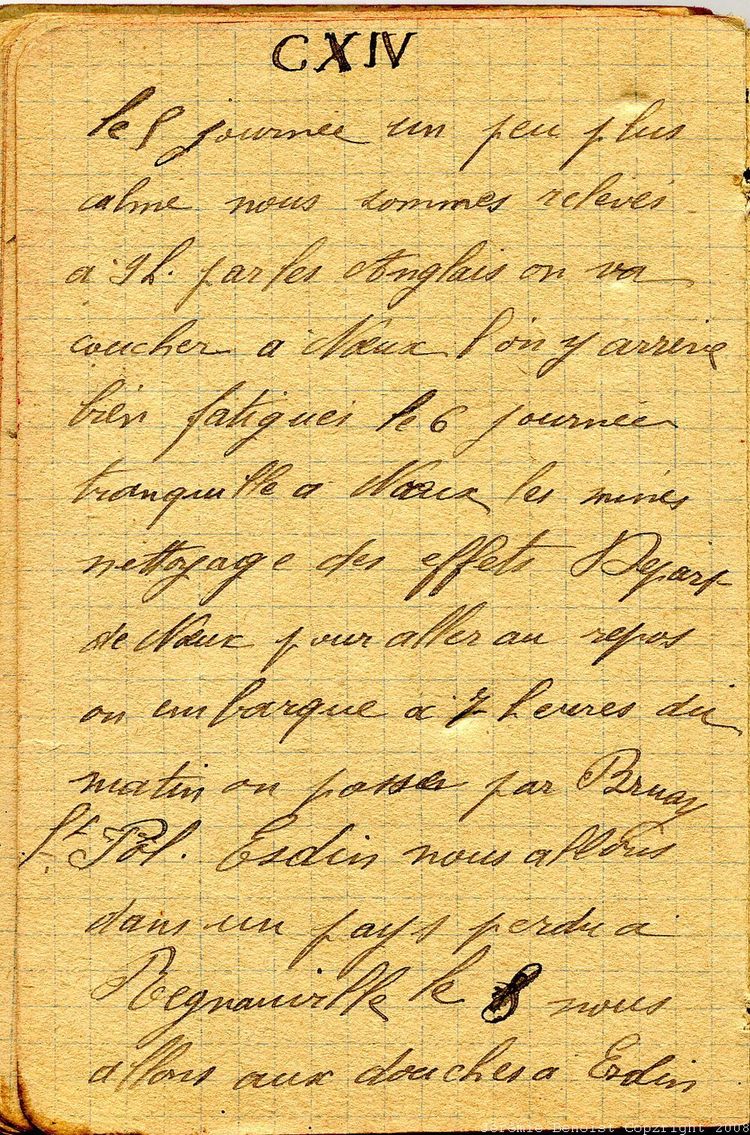 CXIV
le 5 journée un peu plus
calme nous sommes relevés
a 9h. par les Anglais on va
coucher a Nœux l'on y arrive
bien fatigués le 6 journée
tranquille a Nœux les mines
nettoyage des effets Depart
de Nœux pour aller au repos
on embarque a 7 heures du
matin on passe par Bruay
St Pol. Esdin nous allons
dans un pays perdu a
Regnauville le 8 nous
allons aux douches a Esdin
Jeremie Benoist Copyright 2008